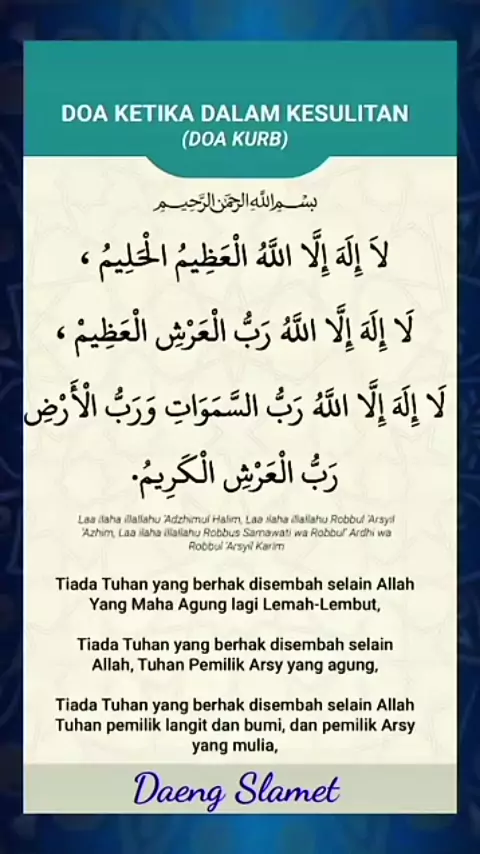 DOA KETIKA DALAM KESULITAN
(DOA KURB)
بِسْمِ اللَّهِ الرَّحْمَنِ الرَّحِيمِ
لاَ إِلَهَ إِلَّا اللَّهُ الْعَظِيمُ الْحَلِيمُ ،
لَا إِلَهَ إِلَّا اللَّهُ رَبُّ الْعَرْشِ الْعَظِيمْ ،
لَا إِلَهَ إِلَّا اللَّهُ رَبُّ السَّمَوَاتِ وَرَبُّ الْأَرْضِ
رَبُّ الْعَرْشِ الْكَرِيمُ.
Laa ilaha illallahu 'Adzhimul Halim, Laa ilaha illallahu Robbul 'Arsyil
'Azhim, Laa ilaha illallahu Robbus Samawati wa Robbul' Ardhi wa
Robbul 'Arsyil Karim
Tiada Tuhan yang berhak disembah selain Allah
Yang Maha Agung lagi Lemah-Lembut,
Tiada Tuhan yang berhak disembah selain
Allah, Tuhan Pemilik Arsy yang agung,
Tiada Tuhan yang berhak disembah selain Allah
Tuhan pemilik langit dan bumi, dan pemilik Arsy
yang mulia,
Daeng Slamet